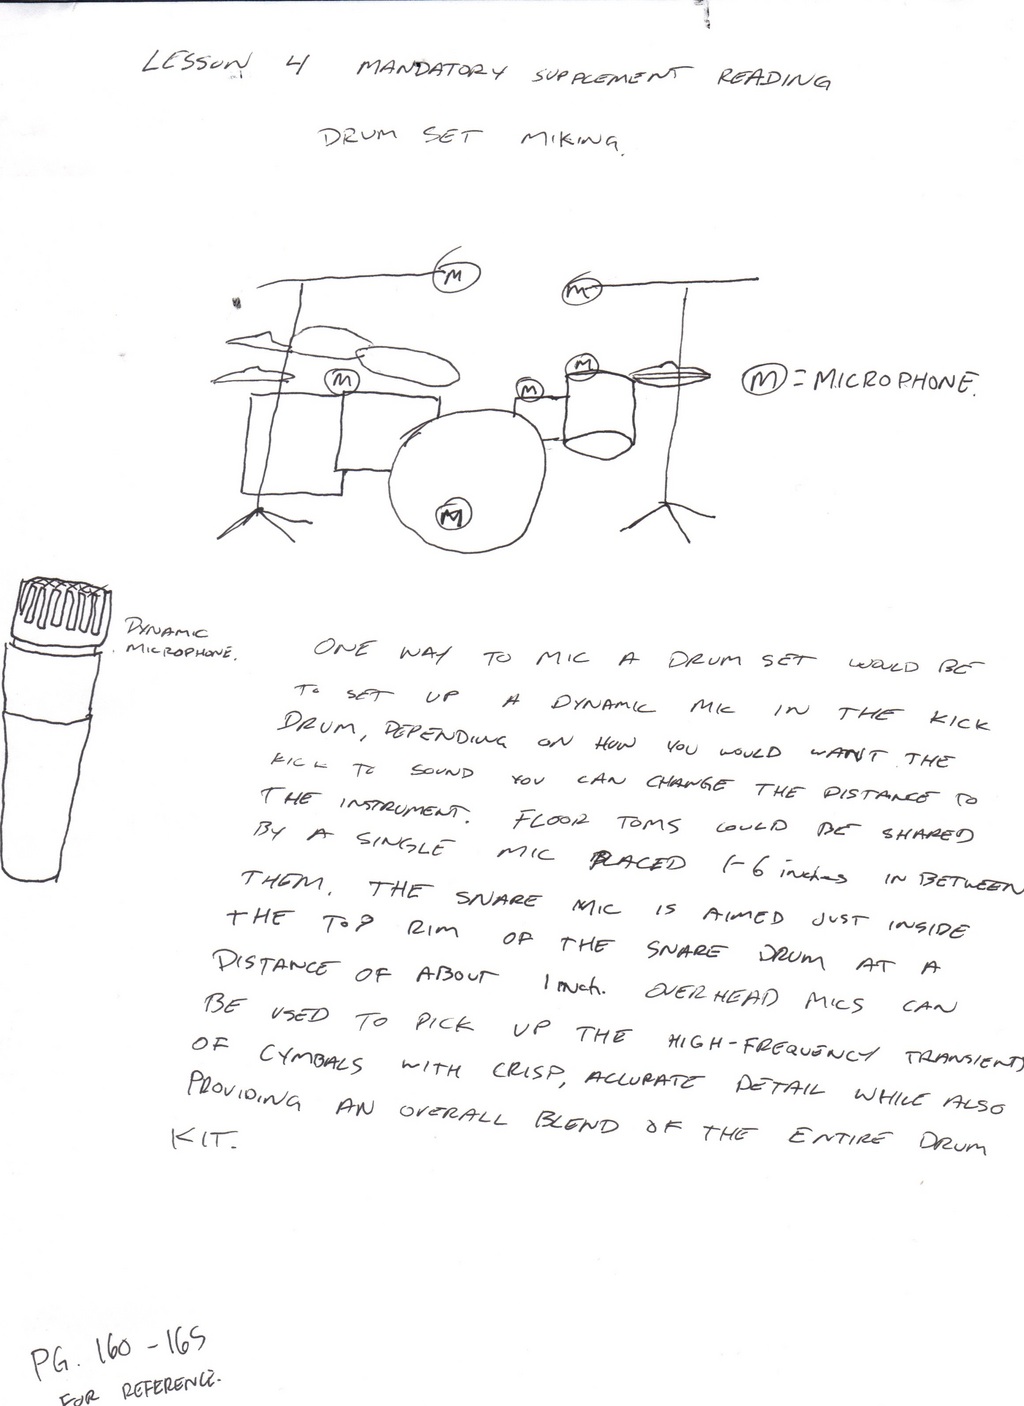 LESSON 4 MANDATORY SUPPLEMENT READING
DRUM SET MIKING.
M
M
M
M
M
M = MICROPHONE.
M
DYNAMIC
MICROPHONE.
ONE WAY TO MIC A DRUM SET WOULD BE
TO SET UP A DYNAMIC MIC IN THE KICK
DRUM, DEPENDING ON HOW YOU WOULD WANT THE
KICK TO SOUND YOU CAN CHANGE THE DISTANCE TO
THE INSTRUMENT. FLOOR TOMS COULD BE SHARED
BY A SINGLE MIC PLACED 1-6 inches IN BETWEEN
THEM. THE SNARE MIC IS AIMED JUST INSIDE
THE TOP RIM OF THE SNARE DRUM AT A
DISTANCE OF ABOUT 1 inch. OVERHEAD MICS CAN
BE USED TO PICK UP THE HIGH-FREQUENCY TRANSIENTS
OF CYMBALS WITH CRISP, ACCURATE DETAIL WHILE ALSO
PROVIDING AN OVERALL BLEND OF THE ENTIRE DRUM
KIT.
PG. 160-165
FOR REFERENCE.